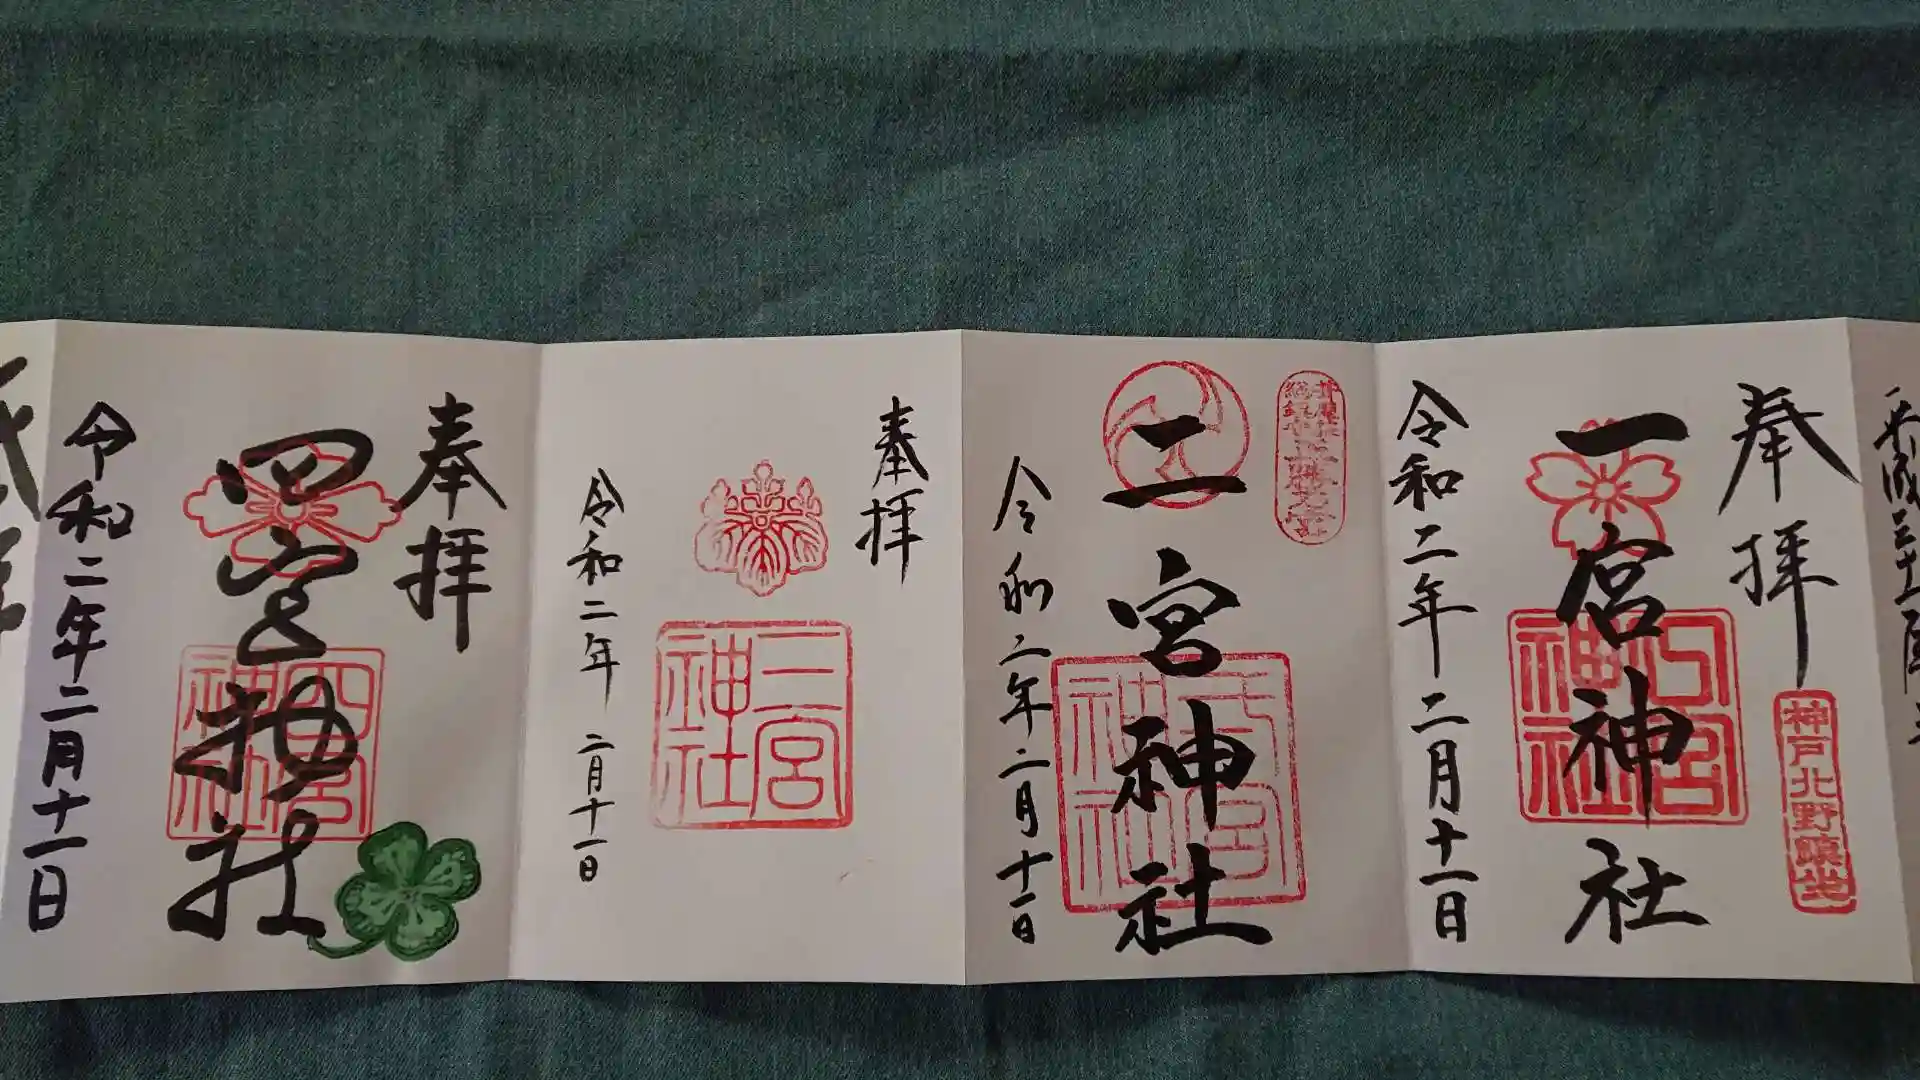 平成三十
奉拝
一宮神社
一宮神社
神戸北野鎮坐
令和二年二月十一日
二宮神社
二宮神社
令和二年二月十一日
奉拝
三宮神社
令和二年二月十一日
奉拝
四宮神社
四宮神社
令和二年二月十一日